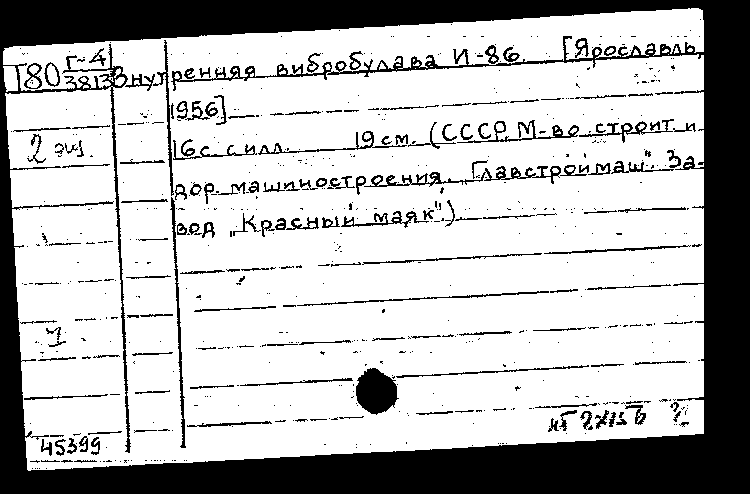 Г-4
180 3813
Внутренняя вибробулава И-86. [Ярославль,
1956]
2 экз. 16 с. с илл. 19 см. (СССР. М-во строит. и
дор. машиностроения. „Главстроймаш". За-
вод „Красный маяк".)
45399